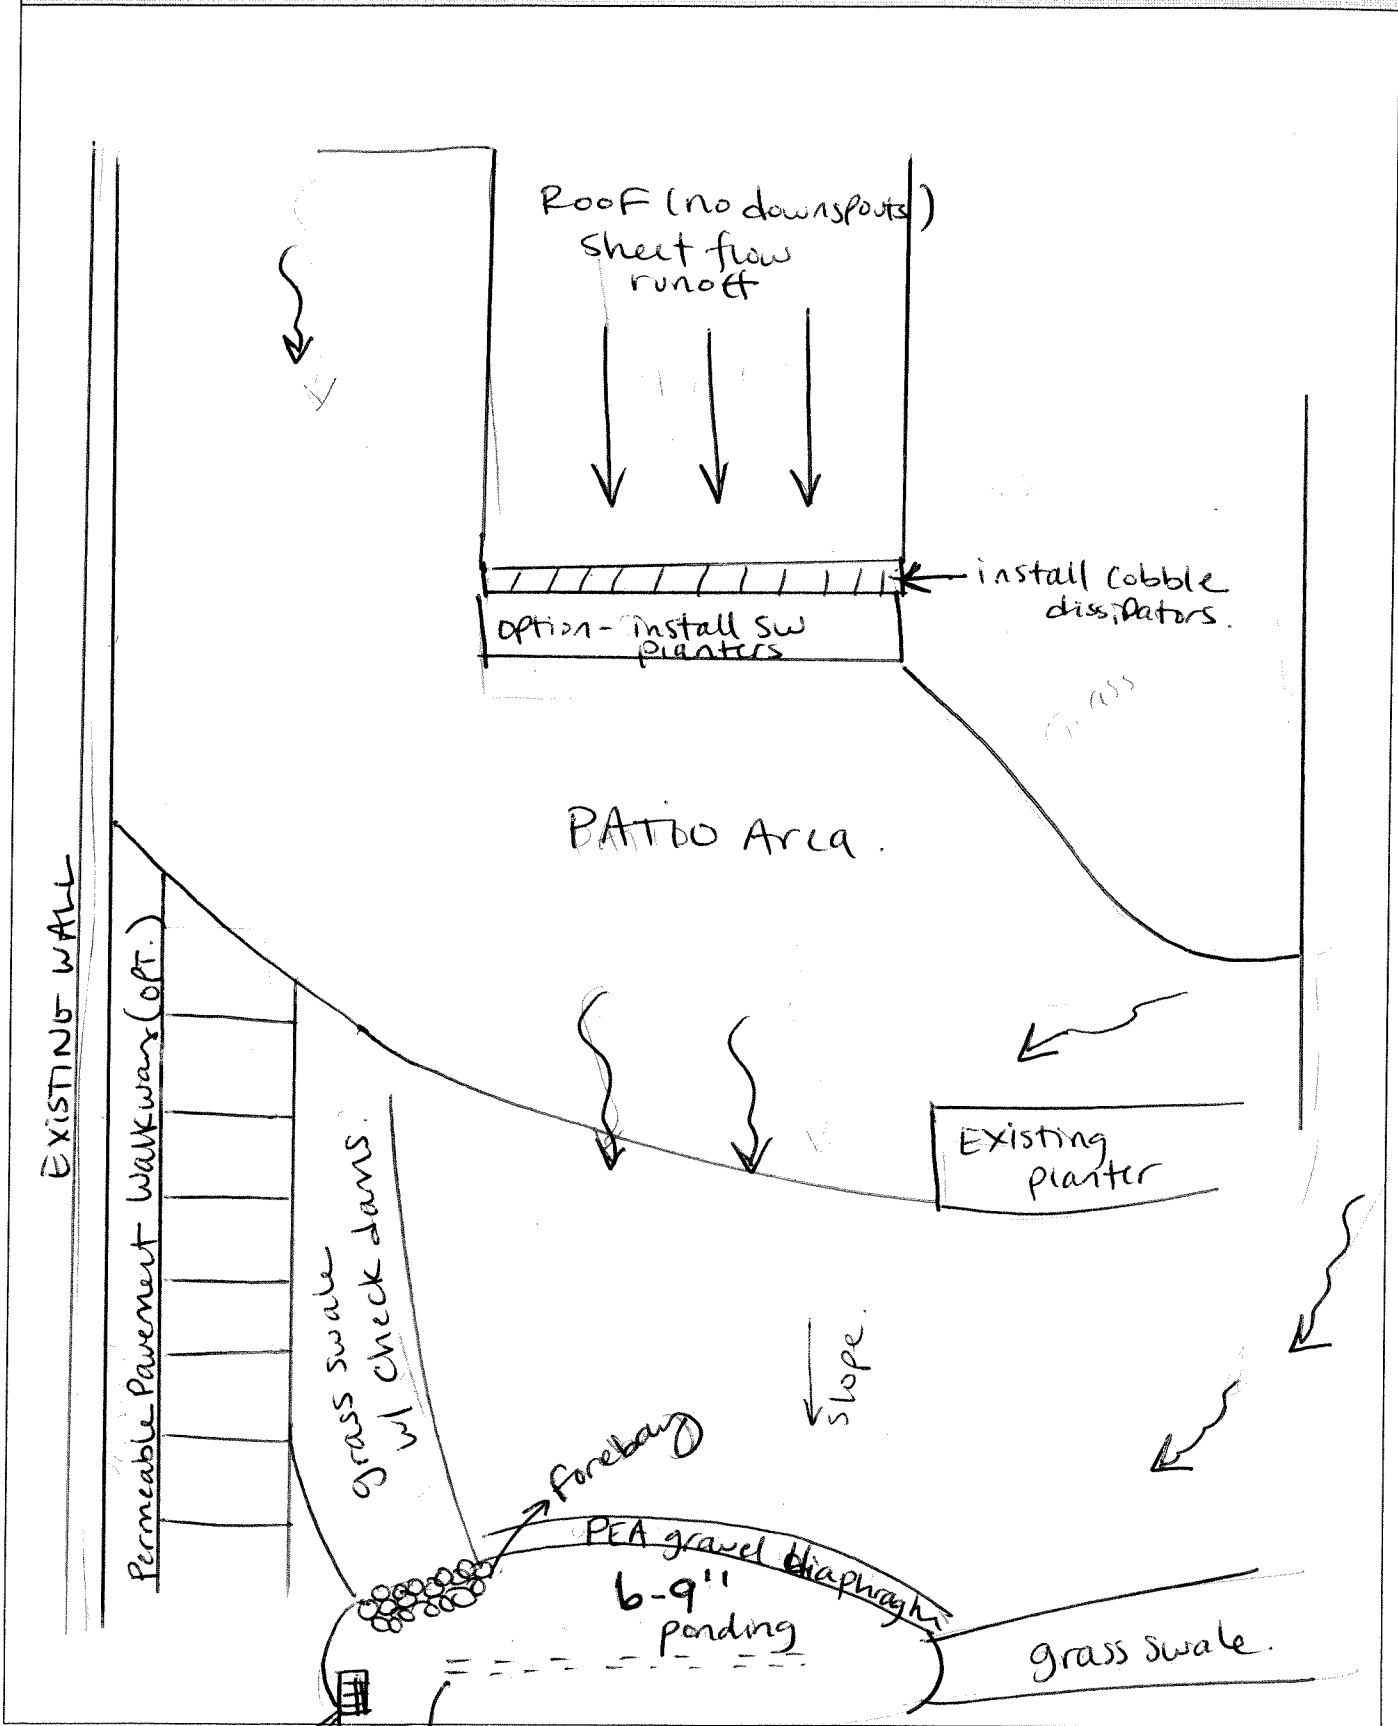 ROOF (no downspouts)
sheet flow
runoff
install cobble
dissipators.
option - install SW
planters
Grass
PATIO Area.
EXISTING WALL
Permeable Pavement Walkway (OPT.)
grass swale
w/ check dams.
Existing
planter
slope.
Forebay
PEA gravel diaphraghm
6-9"
ponding
grass swale.